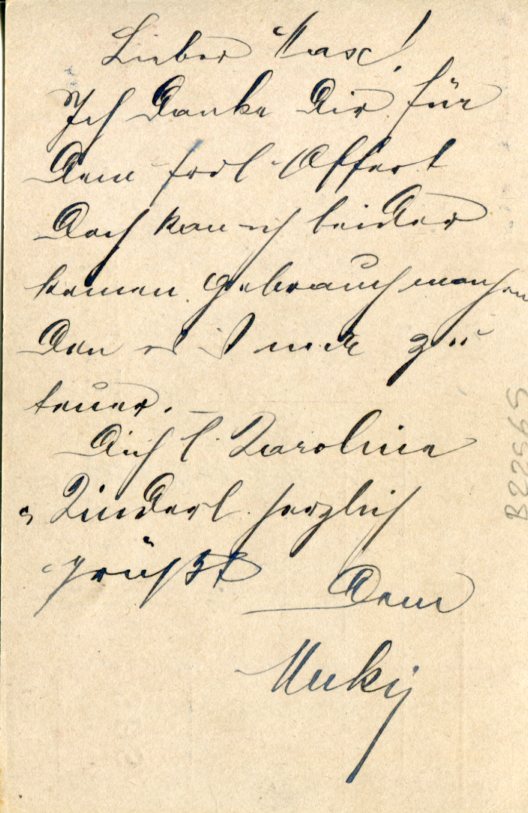 Lieber Max!
Ich Danke Dir für
Dein frdl. Offert
Doch kan ich leider
keinen Gebrauch machen
Den es ist mir zu
teuer.
Dich l. Karoline
u Kinderl. herzlich
grüßt Dein
Muky
B22565